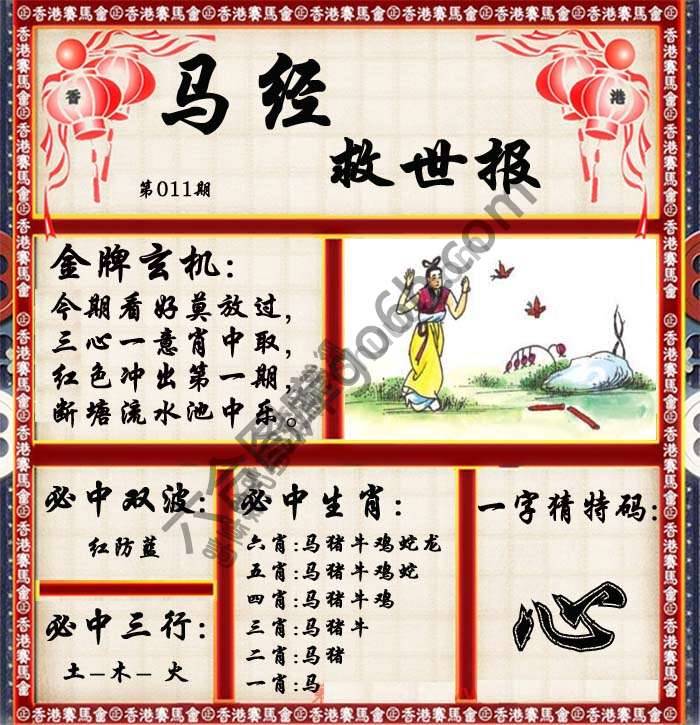 香港賽馬會
香 港
马经
救世报
第011期
金牌玄机:
今期看好莫放过,
三心一意肖中取,
红色冲出第一期,
断塘流水池中乐。
必中双波:
红防蓝
必中三行:
土-木-火
必中生肖:
六肖:马猪牛鸡蛇龙
五肖:马猪牛鸡蛇
四肖:马猪牛鸡
三肖:马猪牛
二肖:马猪
一肖:马
一字猜特码:
心